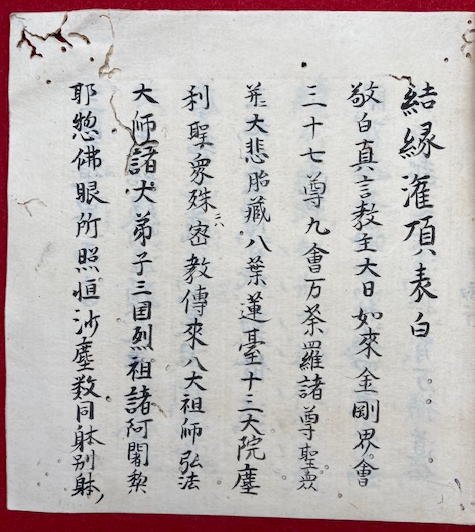 結縁潅頂表白
敬白真言教主大日如來金剛界會
三十七尊九會万荼羅諸尊聖衆
并大悲胎藏八葉蓮臺十三大院塵
利聖衆殊ニハ密教傳來八大祖師弘法
大師諸大弟子三国烈祖諸阿闍梨
耶惣佛眼所照恒沙塵数同躰別躰